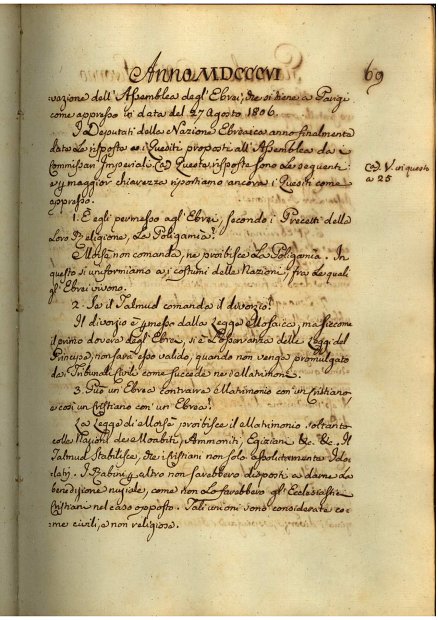 Anno MDCCCVI
69
vazione dell'Assemblea degl'Ebrei, che si tiene a Parigi
come appresso in data del 27 Agosto 1806.
I Deputati della Nazione Ebraica anno finalmente
data la risposta ai Quesiti proposti all'Assemblea da i
Commissari Imperiali (a) Queste risposte sono le seguenti
e p maggior chiarezza riportiamo ancora i Quesiti come
appresso.
(a) V. in questo
a 25
1. È egli permesso agl'Ebrei, secondo i Precetti della
Loro Religione, La Poligamia?
Mosè non comanda, ne proibisce La Poligamia. In
questo si uniformano a i costumi delle Nazioni fra le quali
gl'Ebrei vivono.
2. Se il Talmud comanda il divorzio?
Il divorzio è p messo dalla Legge Mosaica, ma siccome
il primo dovere degl'Ebrei, si è l'osservanza delle Leggi del
Principe, non sarà esso valido, quando non venga promulgato
da Tribunali Civili come succede ne i Matrimoni.
3. Può un Ebreo contrarre Matrimonio con un Cristiano
e così un Cristiano con un'Ebrea?
La Legge di Mosè proibisce il Matrimonio soltanto
colle Nazioni de i Moabiti, Ammoniti, Egiziani &c. &c. Il
Talmud Stabilisce, che i Cristiani non sono assolutamente Ido-
latri. I Rabini p altro non sarebbero disposti a dare la
benedizione nuziale, come non Lo farebbero gl'Ecclesiastici
Cristiani nel caso opposto. Tali unioni sono considerate co-
me civili, e non religiose.